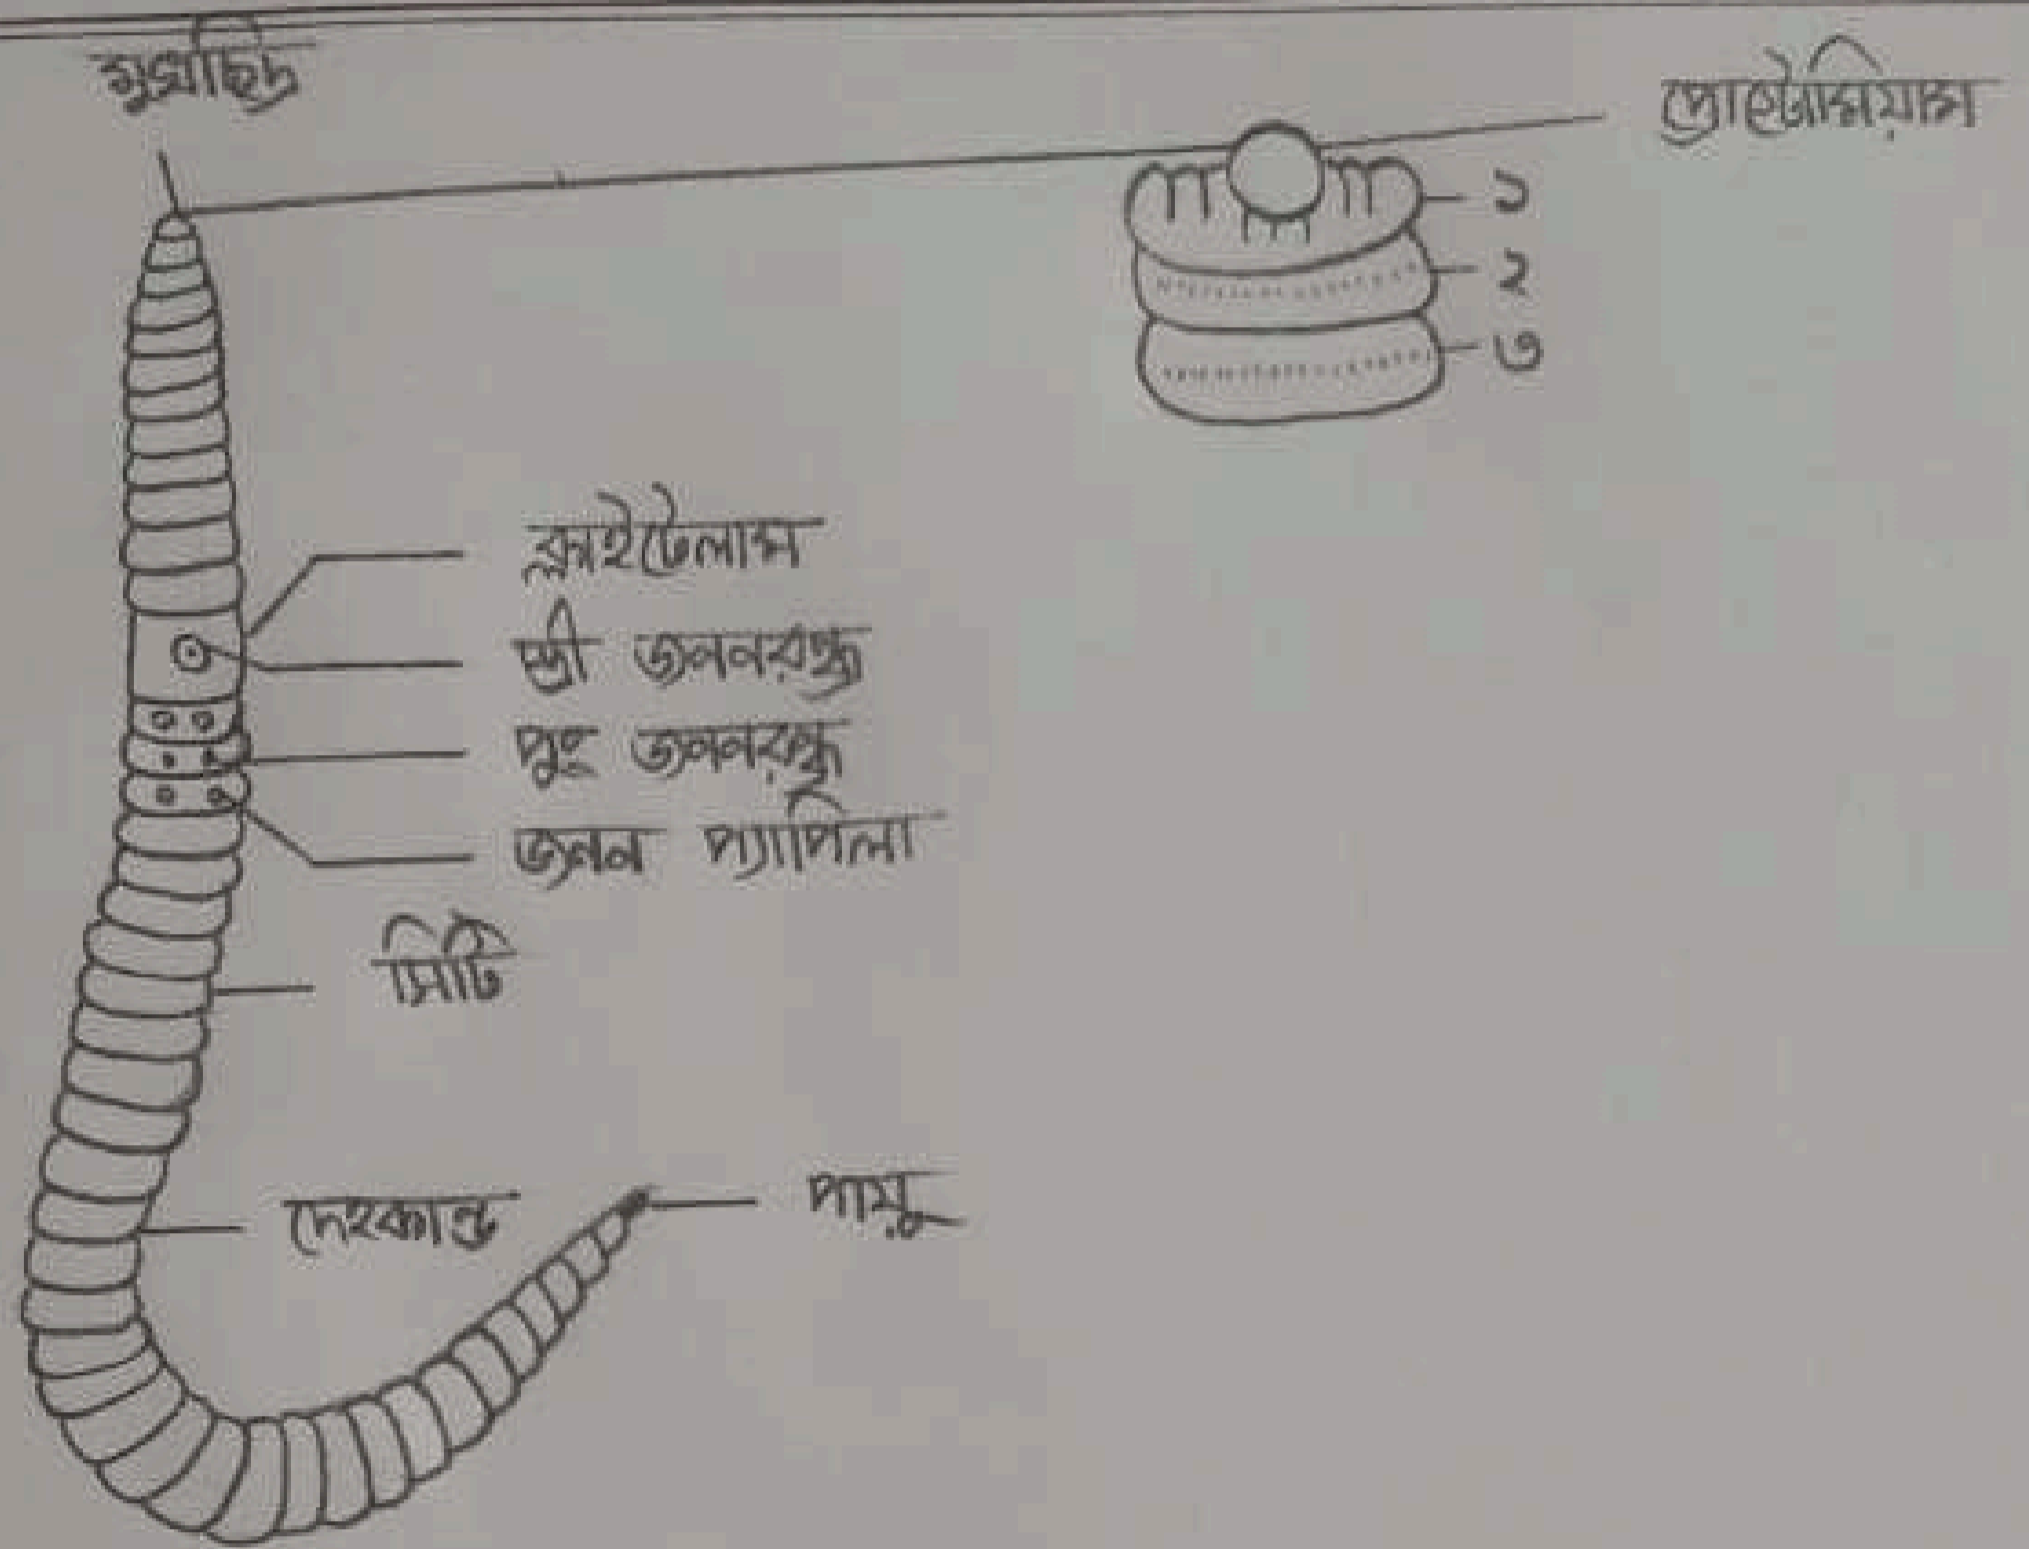 মুখছিদ্র
প্রোস্টোমিয়াম
১
২
৩
ক্লাইটেলাম
স্ত্রী জননরন্ধ্র
পুং জননরন্ধ্র
জনন প্যাপিলা
সিটি
দেহকান্ড
পায়ু